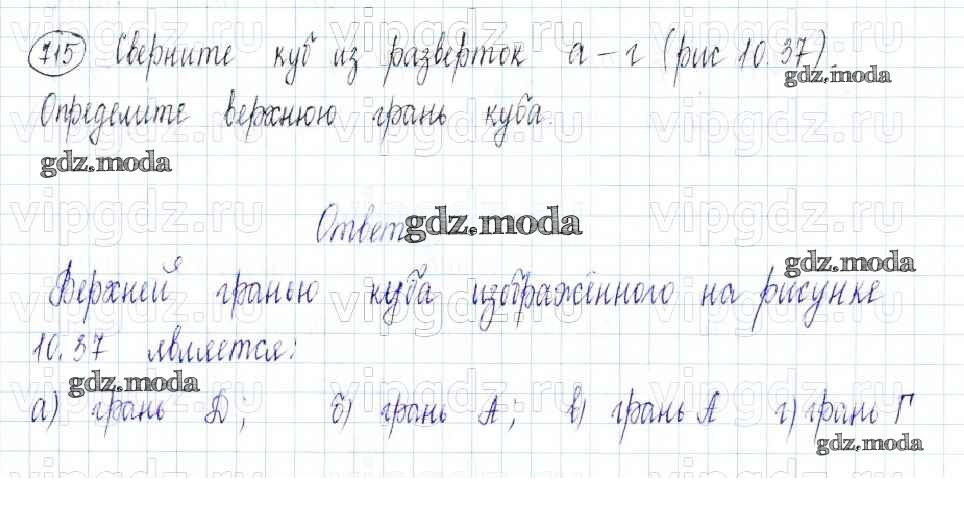 715 Сверните куб из разверток а-г (рис 10.37).
gdz.moda
Определите верхнюю грань куба.
gdz.moda
Ответ
gdz.moda
gdz.moda
Верхней гранью куба изображённого на рисунке
10.37 является:
gdz.moda
а) грань D; б) грань А; в) грань А г) грань Г
gdz.moda
vipgdz.ru